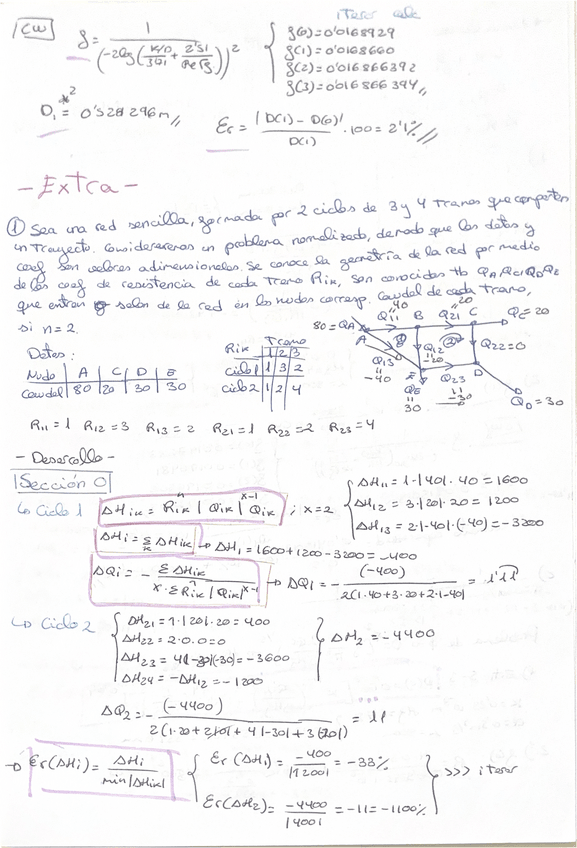 iterar calc
CW
f = 1 / (-2log(K/D / 3'71 + 2'51 / Re√f))²
f(0) = 0'0168929
f(1) = 0'0168660
f(2) = 0'016866392
f(3) = 0'016866394,,
D₁*² = 0'528296m,,
Er = |D(1) - D(0)| / D(1) · 100 = 2'1%,,
- Extra -
① Sea una red sencilla, formada por 2 ciclos de 3 y 4 tramos que comparten
un trayecto. Consideraremos un problema normalizado, de modo que los datos y
coef son valores adimensionales. Se conoce la geometría de la red por medio
de los coef de resistencia de cada tramo Rik, son conocidas tb QA QC QD QE
que entran o salen de la red en los nudos corresp. Caudal de cada tramo,
si n = 2.
Datos:
Nudo | A | C | D | E
Caudal | 80 | 20 | 30 | 30
Tramo
Rik | 1 | 2 | 3
ciclo 1 | 1 | 3 | 2
ciclo 2 | 1 | 2 | 4
80 = QA
A
Q11 = 40
B
Q21 = 20
C
QC = 20
①
Q12 = 20
②
Q22 = 0
Q13 = -40
E
QE = 30
Q23 = -30
D
QD = 30
R11 = 1 R12 = 3 R13 = 2 R21 = 1 R22 = 2 R23 = 4
- Desarrollo -
Sección 0
↳ Ciclo 1
ΔHik = Rikⁿ |Qik| Qik ˣ⁻¹ ; x = 2
ΔH11 = 1·|40|·40 = 1600
ΔH12 = 3·|20|·20 = 1200
ΔH13 = 2·|-40|·(-40) = -3200
ΔHi = Σk ΔHik → ΔH1 = 1600 + 1200 - 3200 = -400
ΔQi = - Σ ΔHik / x · Σ Rik |Qik|ˣ⁻¹ → ΔQ1 = - (-400) / 2(1·40 + 3·20 + 2·|-40|) = 1'11
↳ Ciclo 2
ΔH21 = 1·|20|·20 = 400
ΔH22 = 2·0·0 = 0
ΔH23 = 4|-30|(-30) = -3600
ΔH24 = -ΔH12 = -1200
ΔH2 = -4400
ΔQ2 = - (-4400) / 2(1·20 + 2|0| + 4|-30| + 3|20|) = 11
→ Er(ΔHi) = ΔHi / min|ΔHik|
Er(ΔH1) = -400 / |1200| = -33%
Er(ΔH2) = -4400 / |400| = -11 = -1100%
>>> iterar